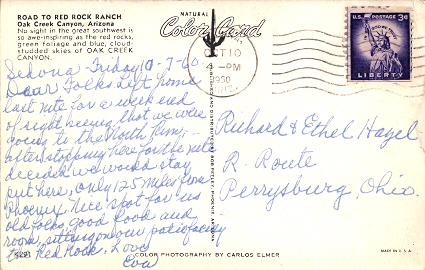 ROAD TO RED ROCK RANCH
Oak Creek Canyon, Arizona
No sight in the great southwest is
so awe-inspiring as the red rocks,
green foliage and blue, cloud-
studded skies of OAK CREEK
CANYON.
NATURAL
Color Card
OCT 10
4 - PM
1960
U.S. POSTAGE 3¢
LIBERTY
Sedona - Friday 10-7-60
Dear Folks Left home
last nite for a week end
of sight seeing that we were
going to the North Rim, -
after stopping here for the nite
decided we would stay
put here, only 125 miles from
Phoenix. Nice spot for us
old folks, good food and
room, sitting on our patio facing
the Red Rocks. Love
Richard & Ethel Hagel
R. Route
Perrysburg, Ohio.
COLOR PHOTOGRAPHY BY CARLOS ELMER
MADE IN U.S.A.